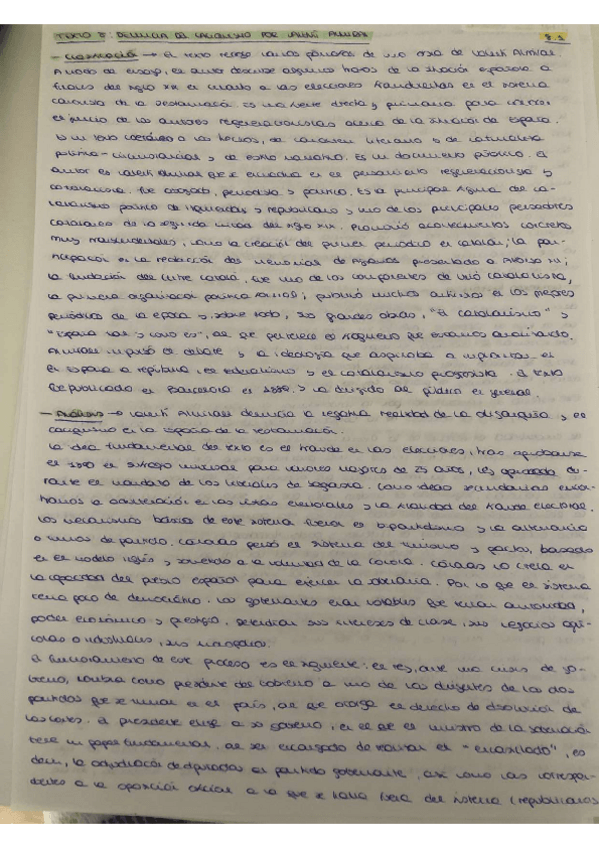 TEXTO 8: DENUNCIA DEL CACIQUISMO POR VALENTÍ ALMIRALL 8.1
- CLASIFICACIÓN → El texto recoge varios párrafos de una obra de Valentí Almirall.
A modo de ensayo, el autor describe algunos rasgos de la situación española a
finales del siglo XIX en cuanto a las elecciones fraudulentas en el sistema
canovista de la Restauración. Es una fuente directa y primaria para conocer
el juicio de los autores regeneracionistas acerca de la situación de España.
Es un texto coetáneo a los hechos, de carácter literario y de naturaleza
política-circunstancial y de estilo narrativo. Es un documento público. El
autor es Valentí Almirall que se encuadra en el pensamiento regeneracionista y
catalanista. Fue abogado, periodista y político. Es la principal figura del ca-
talanismo político de izquierdas y republicano y uno de los principales pensadores
catalanes de la segunda mitad del siglo XIX. Promovió acontecimientos concretos
muy trascendentales, como la creación del primer periódico en catalán; la par-
ticipación en la redacción del memorial de agravios presentado a Alfonso XII;
la fundación del Centre Català, fue uno de los componentes de Unió Catalanista,
la primera organización política; publicó muchos artículos en los mejores
periódicos de la época y, sobre todo, sus grandes obras, "El catalanismo" y
"España tal y como es", al que pertenece el fragmento que estamos analizando.
Almirall impulsó el debate y la ideología que aspiraba a implantar en
en España la república, el federalismo y el catalanismo progresista. El texto
fue publicado en Barcelona en 1889, y va dirigido al público en general.
- ANÁLISIS → Valentí Almirall denuncia la realidad de la oligarquía y el
caciquismo en la España de la Restauración.
La idea fundamental del texto es el fraude en las elecciones, tras aprobarse
en 1890 el sufragio universal para varones mayores de 25 años, ley aprobada du-
rante el mandato de los liberales de Sagasta. Como ideas secundarias encon-
tramos la adulteración en las listas electorales y la finalidad del fraude electoral.
Los mecanismos básicos de este sistema fueron el bipartidismo y la alternancia
o turnos de partido. Cánovas pensó el sistema del turnismo y pactos, basado
en el modelo inglés y sometido a la voluntad de la Corona. Cánovas no creía en
la capacidad del pueblo español para ejercer la soberanía. Por lo que el sistema
tenía poco de democrático. Los gobernantes eran notables que tenían autoridad,
poder económico y prestigio, defendían sus intereses de clase, sus negocios agrí-
colas o industriales, sus monopolios.
El funcionamiento de este proceso es el siguiente: el rey, ante una crisis de go-
bierno, nombra como presidente del gobierno a uno de los dirigentes de los dos
partidos que se turnan en el país, al que otorga el derecho de disolución de
las cortes. El presidente elige a su gobierno, en el que el ministro de la gobernación
tiene un papel fundamental, al ser encargado de realizar el "encasillado", es
decir, la adjudicación de diputados al partido gobernante, así como los correspon-
dientes a la oposición oficial a la que se sitúa fuera del sistema (republicanos